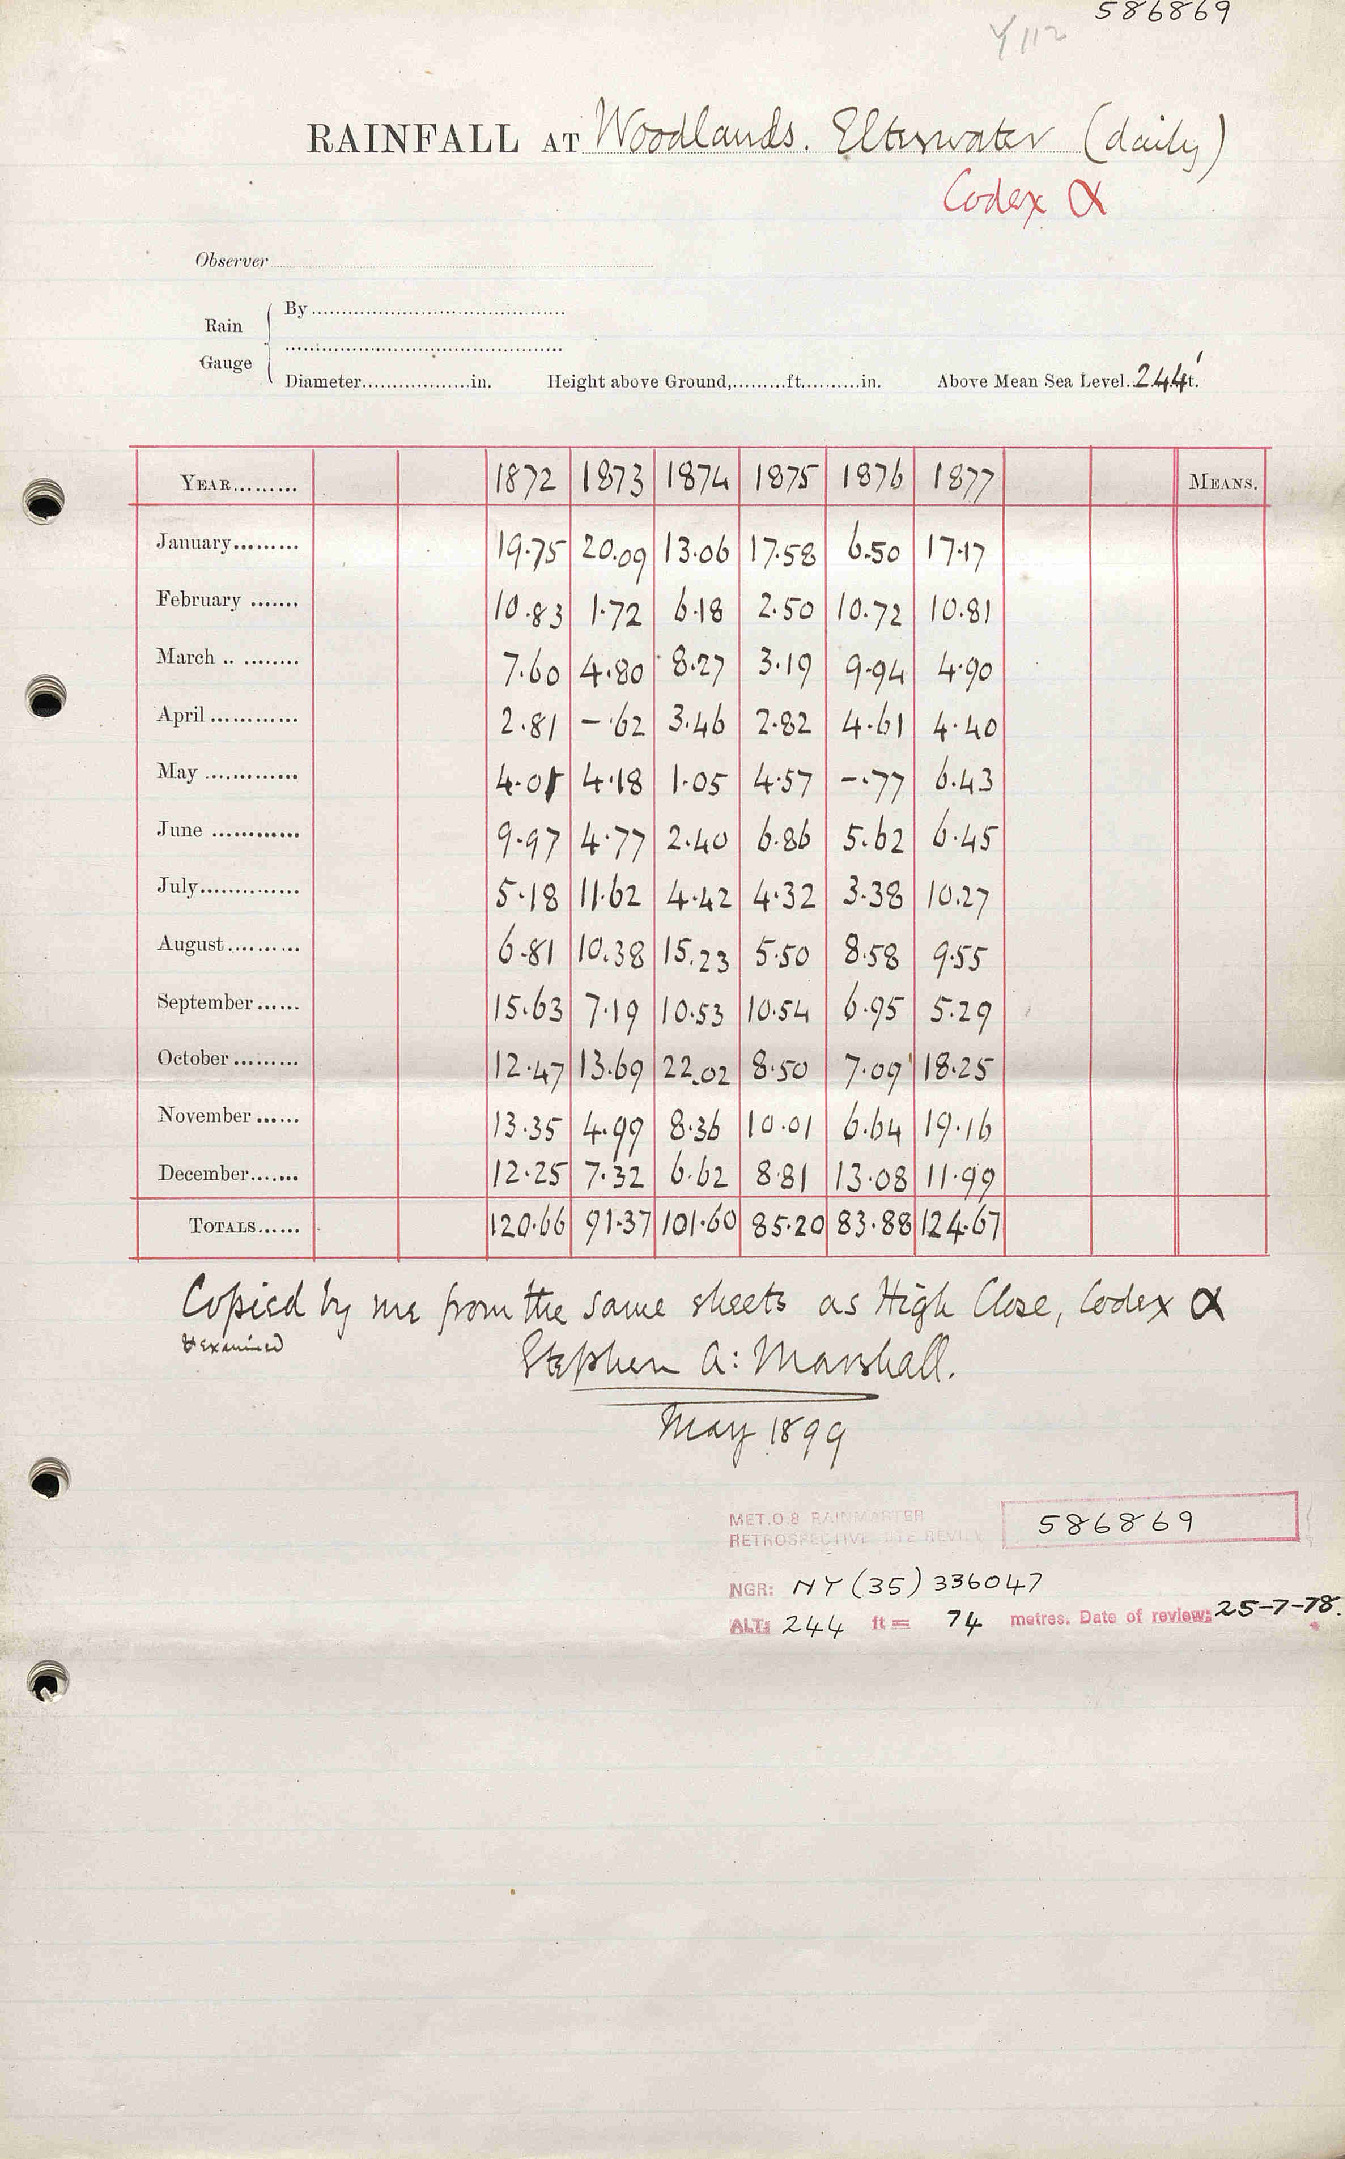 586869
Y112
RAINFALL AT Woodlands. Elterwater (daily)
Codex α
Observer
Rain Gauge { By
Diameter in. Height above Ground, ft. in. Above Mean Sea Level 244' ft.
YEAR 1872 1873 1874 1875 1876 1877 MEANS.
January 19.75 20.09 13.06 17.58 6.50 17.17
February 10.83 1.72 6.18 2.50 10.72 10.81
March 7.60 4.80 8.27 3.19 9.94 4.90
April 2.81 -.62 3.46 2.82 4.61 4.40
May 4.01 4.18 1.05 4.57 -.77 6.43
June 9.97 4.77 2.40 6.86 5.62 6.45
July 5.18 11.62 4.42 4.32 3.38 10.27
August 6.81 10.38 15.23 5.50 8.58 9.55
September 15.63 7.19 10.53 10.54 6.95 5.29
October 12.47 13.69 22.02 8.50 7.09 18.25
November 13.35 4.99 8.36 10.01 6.64 19.16
December 12.25 7.32 6.62 8.81 13.08 11.99
TOTALS 120.66 91.37 101.60 85.20 83.88 124.67
Copied by me from the same sheets as High Close, Codex α
& examined
Stephen A: Marshall.
May 1899
MET.O.8 RAINMASTER
RETROSPECTIVE SITE REVIEW 586869
NGR: NY (35) 336047
ALT: 244 ft = 74 metres. Date of review: 25-7-78.